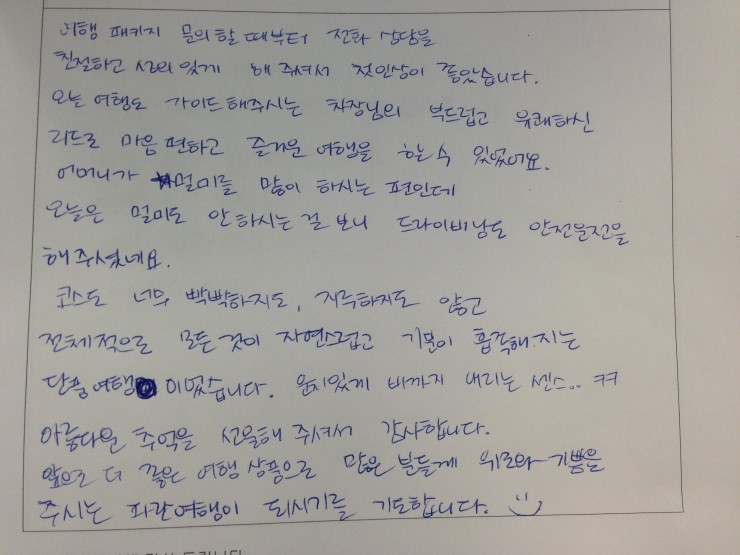 여행 패키지 문의할때부터 전화 상담을
친절하고 성의있게 해 주셔서 첫인상이 좋았습니다.
오늘 여행도 가이드해주시는 차장님의 부드럽고 유쾌하신
리드로 마음 편하고 즐거운 여행을 하는 수 있었어요.
어머니가 멀미를 많이 하시는 편인데
오늘은 멀미도 안하시는 걸 보니 드라이버님도 안전운전을
해주셨네요.
코스도 너무 빡빡하지도, 지루하지도 않고
전체적으로 모든 것이 자연스럽고 기분이 흡족해 지는
단풍여행 이었습니다. 운치있게 비까지 내리는 센스.. ㅋㅋ
아름다운 추억을 선물해 주셔서 감사합니다.
앞으로 더 좋은 여행 상품으로 많은 분들께 위로와 기쁨을
주시는 파란여행이 되시기를 기도합니다.